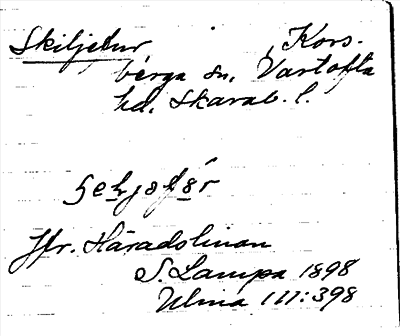 Skiljetur Kors-
berga sn, Vartofta
hd. Skarab. l.
Jfr. Häradslinan
S. Lampa 1898
Ulnia III:398